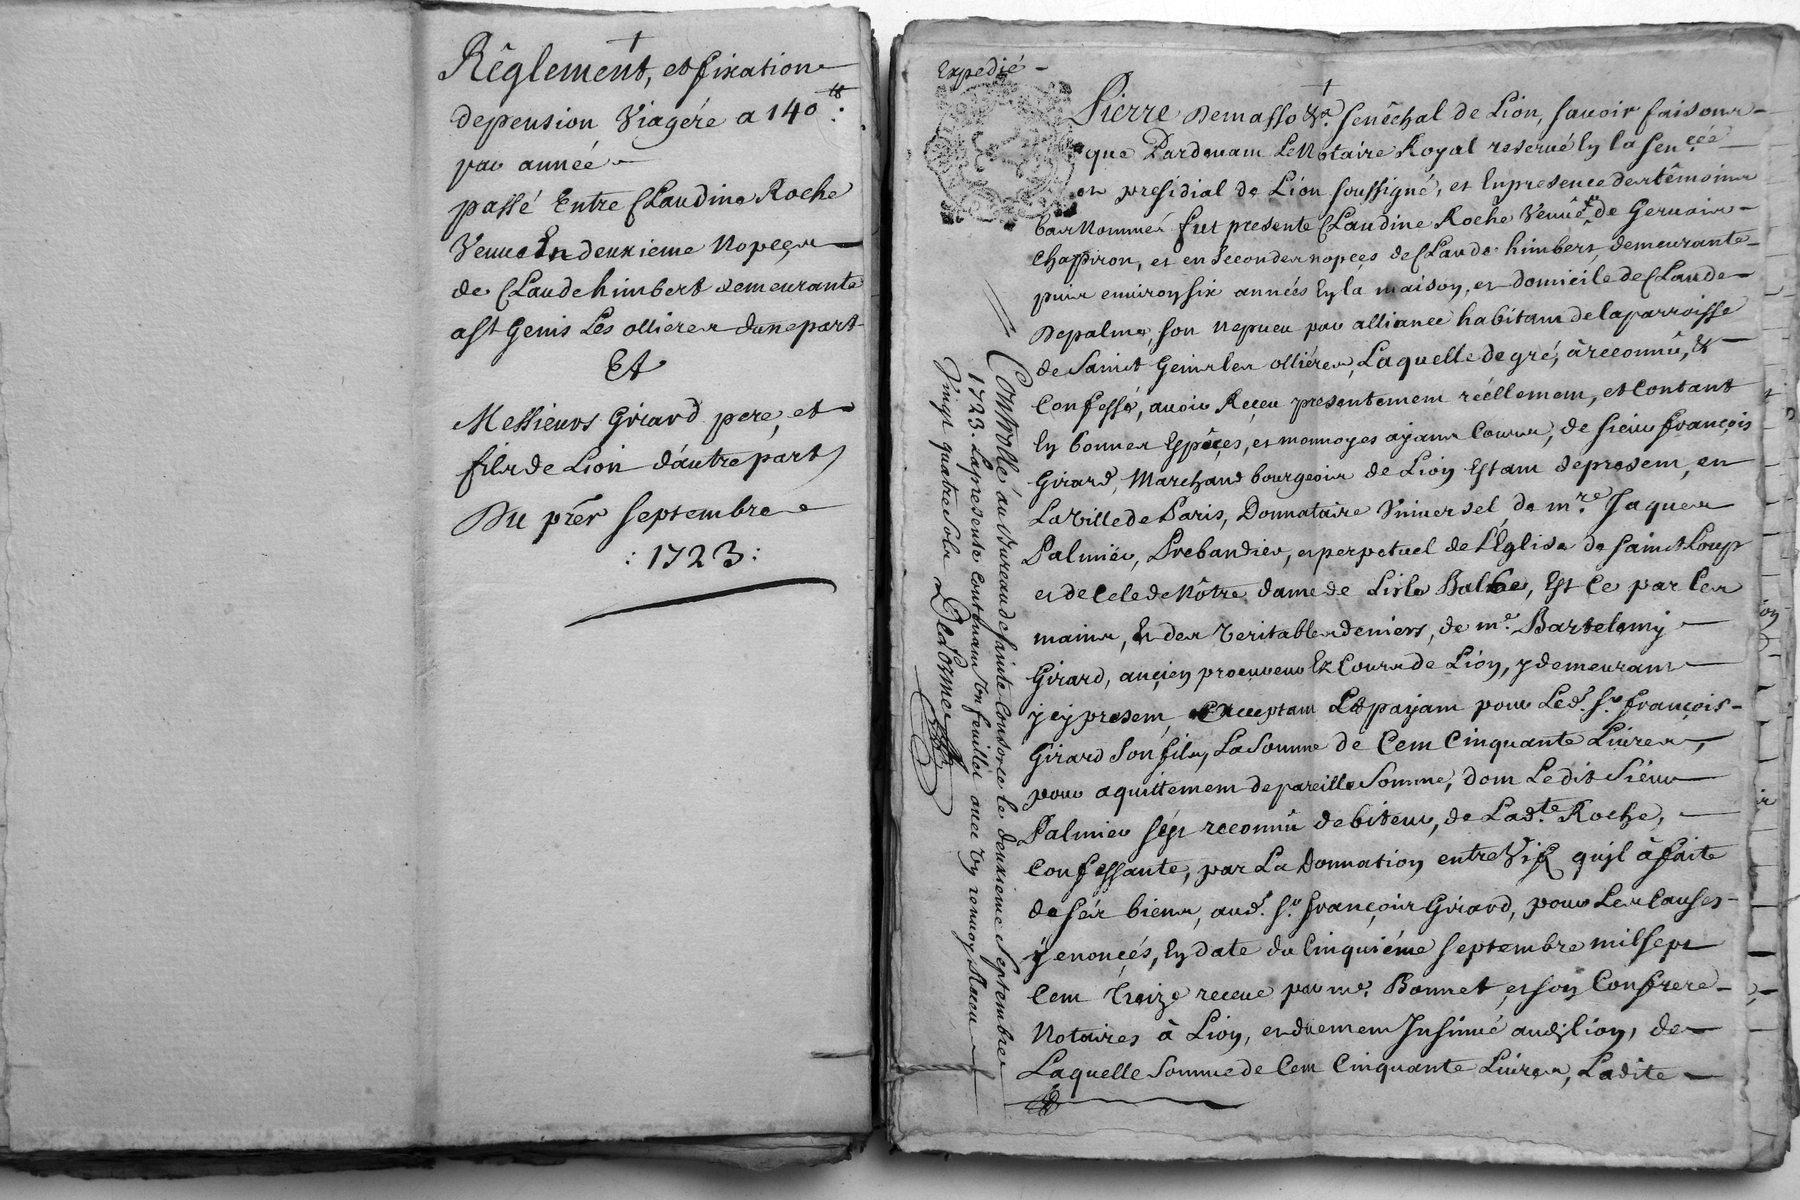 Rêglement, et fixation
de pension Viagére a 140 ᵗᵗ:
par année
passé Entre Claudine Roche
Veuue En deuxieme Nopçes
de Claude himbert demeurante
a St Genis Les ollieres dune part
Et
Messieurs Girard pere, et
fils de Lion d'autre part
Du prer septembre
: 1723 :
Expedié
Pierre Demasso &a. senêchal de Lion, sauoir faisons
que Pardeuant Le Notaire Royal reserué En la sen.cée
et presidial de Lion soussigné, et En presence des têmoins
bas Nommés fut presente Claudine Roche Veuûe de Geruais
Chapiron, et en secondes nopçes de Claude himbert, demeurante
puis enuiron six années En la maison, et domicile de Claude
Depalme, son Nepueu par alliance habitant de la parroisse
de Sainct Genis les olliéres, Laquelle de gré, à reconnû, &
Confessé, auoir Reçeu presentement réellement, et Contant
En bonnes Espêces, et monnoyes ayans Cours, de sieur françois
Girard, Marchand bourgeois de Lion Estant de present, en
La Ville de Paris, Donnataire Vniuersel, de m.re Jaques
Palmier, Prebandier, et perpetuel de L'Eglise de Sainct Loup
et de Cele de Nôtre dame de Lisle Balbe, Est Ce par les
mains, Et des Veritables deniers, de m.e Bartelemy
Girard, ançien procureur Ez Cours de Lion, y demeurant
ycy present, acceptant Et payant pour Led. Sr. françois
Girard Son fils, La Somme de Cent Cinquante Liures,
pour aquittement de pareille Somme, dont Le dit Sieur
Palmier s'est reconnû debiteur, de Lad.te Roche,
Confessante, par La Donnation entre Vifs quil à faite
de sés biens, aud. Sr. françois Girard, pour Les Causes
y enonçés, En date du Cinquiéme septembre mil sept
Cent treize receue par me. Bonnet, et son Confrere
Notaires à Lion, et duement Insinué aud. lion, de
Laquelle Somme de Cent Cinquante Liures, Ladite
Controllé au Bureau de sainte Consorce le deuxieme septembre
1723. La presente contenant Vn feuillet auec Vn renuoy Reçeu
Vingt quatre sols Delorme